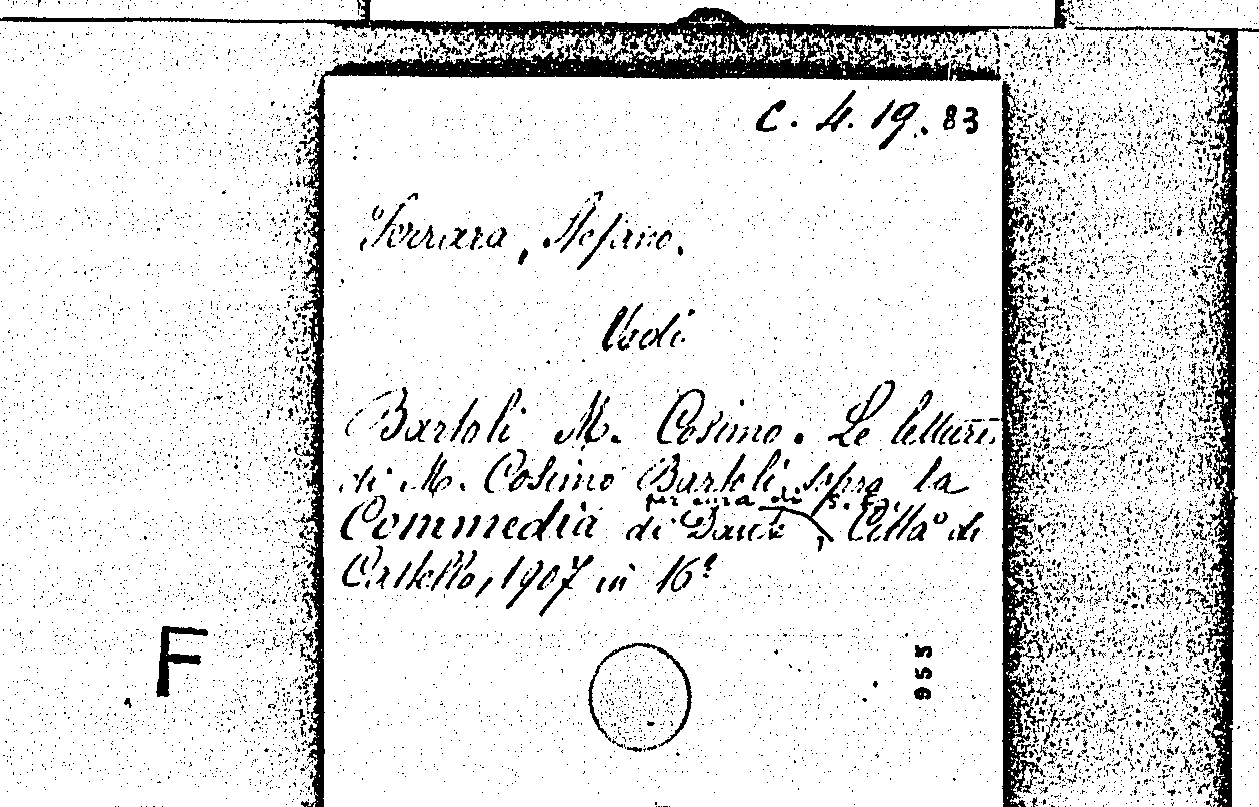 C. 4. 19. 83
Ferrara, Stefano.
Vedi
Bartoli M. Cosimo. Le letture
di M. Cosimo Bartoli sopra la
per cura di S. F.
Commedia di Dante, Città di
Castello, 1907 in 16º
F
955